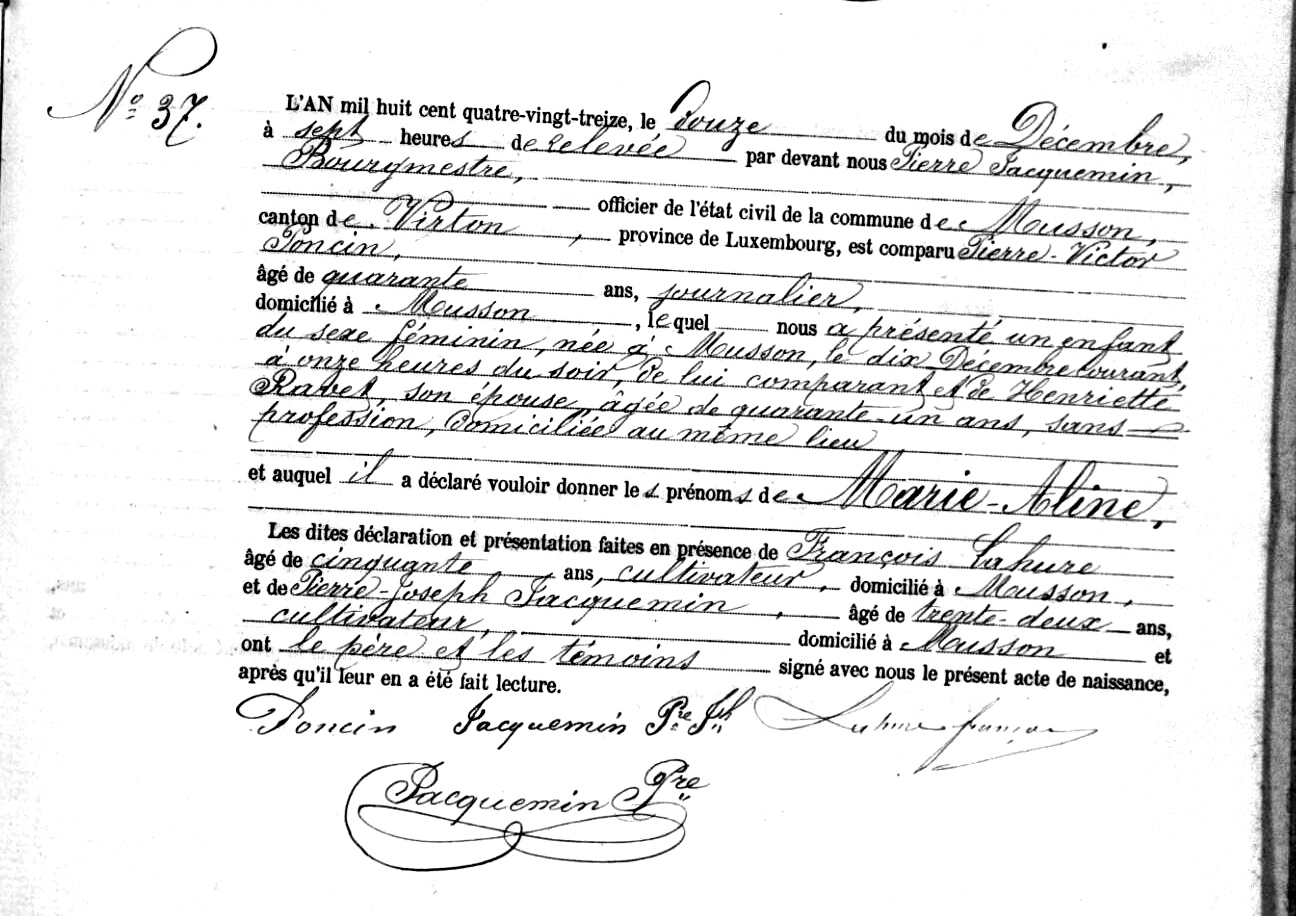 N° 37.
L'AN mil huit cent quatre-vingt-treize, le douze du mois de Décembre,
à sept heures de relevée par devant nous Pierre Jacquemin,
Bourgmestre,
officier de l'état civil de la commune de Musson,
canton de Virton, province de Luxembourg, est comparu Pierre-Victor
Poncin,
âgé de quarante ans, journalier,
domicilié à Musson, lequel nous a présenté un enfant
du sexe féminin, née à Musson, le dix Décembre courant,
à onze heures du soir, de lui comparant et de Henriette
Ravet, son épouse, âgée de quarante-un ans, sans
profession, domiciliée au même lieu
et auquel il a déclaré vouloir donner les prénoms de Marie-Aline,
Les dites déclaration et présentation faites en présence de François Lahure
âgé de cinquante ans, cultivateur, domicilié à Musson,
et de Pierre-Joseph Jacquemin, âgé de trente-deux ans,
cultivateur, domicilié à Musson et
ont le père et les témoins signé avec nous le présent acte de naissance,
après qu'il leur en a été fait lecture.
Poncin Jacquemin Pre Jph Lahure françois
Jacquemin Pre